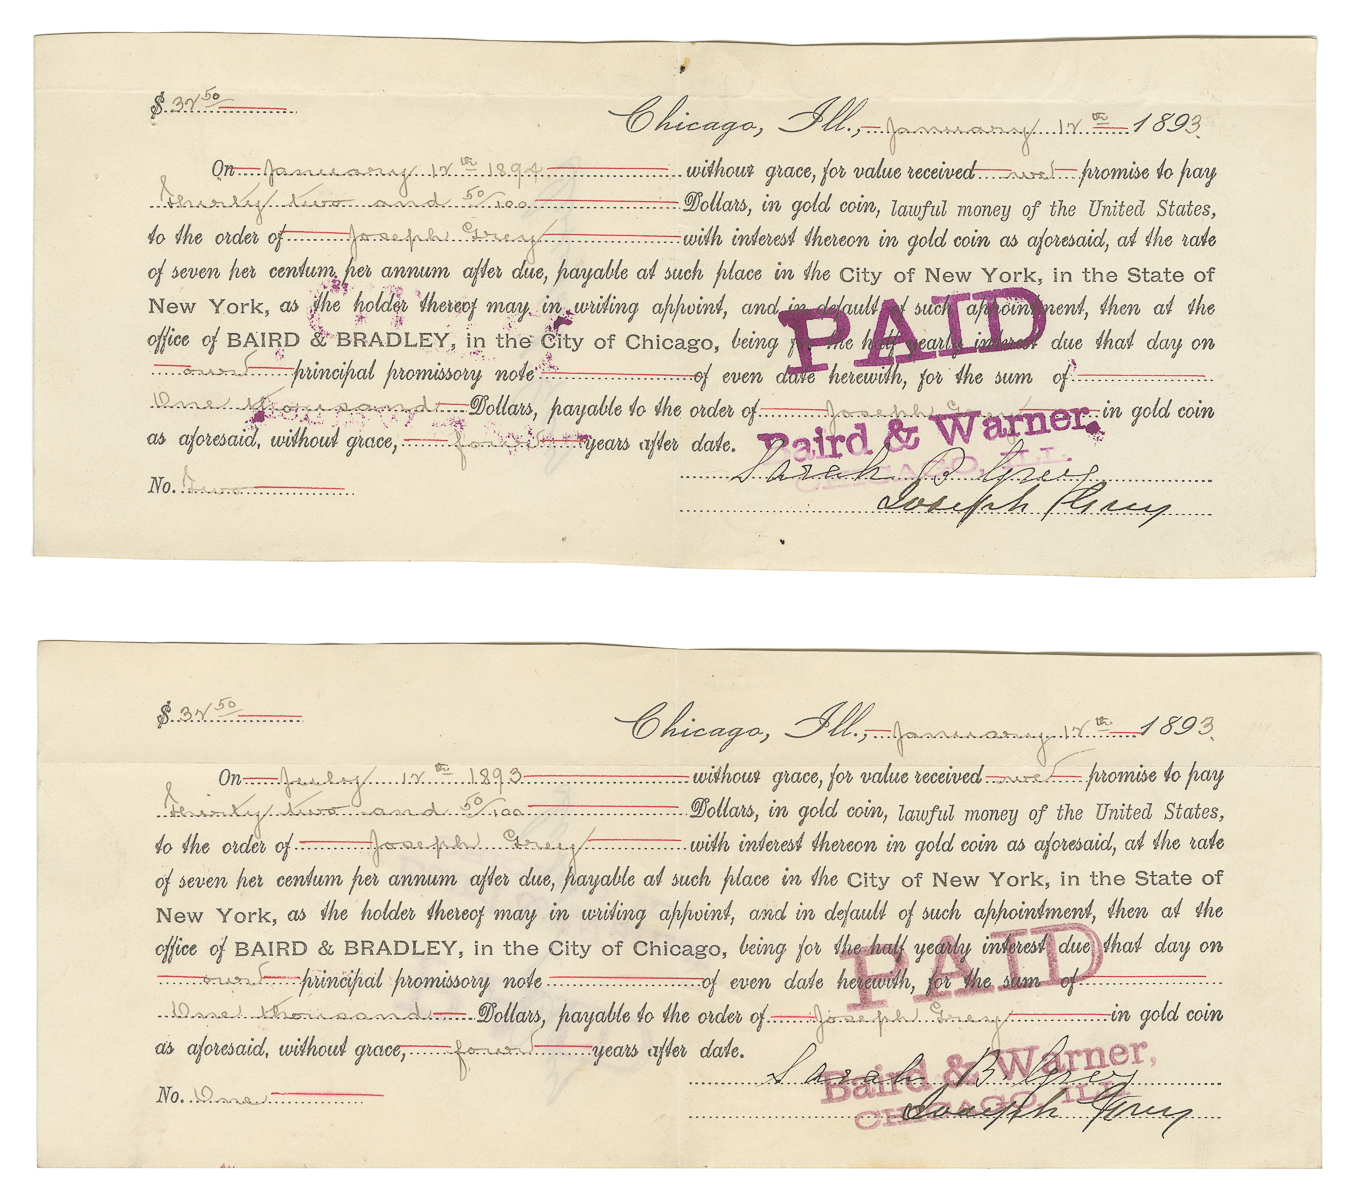 $ 32 50/
Chicago, Ill., January 12th 1893.
On January 12th 1894 without grace, for value received we promise to pay
Thirty two and 50/100 Dollars, in gold coin, lawful money of the United States,
to the order of Joseph Grey with interest thereon in gold coin as aforesaid, at the rate
of seven per centum per annum after due, payable at such place in the City of New York, in the State of
New York, as the holder thereof may in writing appoint, and in default of such appointment, then at the
office of BAIRD & BRADLEY, in the City of Chicago, being for the half yearly interest due that day on
our principal promissory note of even date herewith, for the sum of
One thousand Dollars, payable to the order of Joseph Grey in gold coin
as aforesaid, without grace, four years after date.
PAID
Baird & Warner,
CHICAGO, ILL.
Sarah B Grey
No. Two
Joseph Grey
$ 32 50/
Chicago, Ill., January 12th 1893.
On July 12th 1893 without grace, for value received we promise to pay
Thirty two and 50/100 Dollars, in gold coin, lawful money of the United States,
to the order of Joseph Grey with interest thereon in gold coin as aforesaid, at the rate
of seven per centum per annum after due, payable at such place in the City of New York, in the State of
New York, as the holder thereof may in writing appoint, and in default of such appointment, then at the
office of BAIRD & BRADLEY, in the City of Chicago, being for the half yearly interest due that day on
our principal promissory note of even date herewith, for the sum of
One thousand Dollars, payable to the order of Joseph Grey in gold coin
as aforesaid, without grace, four years after date.
PAID
Baird & Warner,
CHICAGO, ILL.
Sarah B Grey
No. One
Joseph Grey